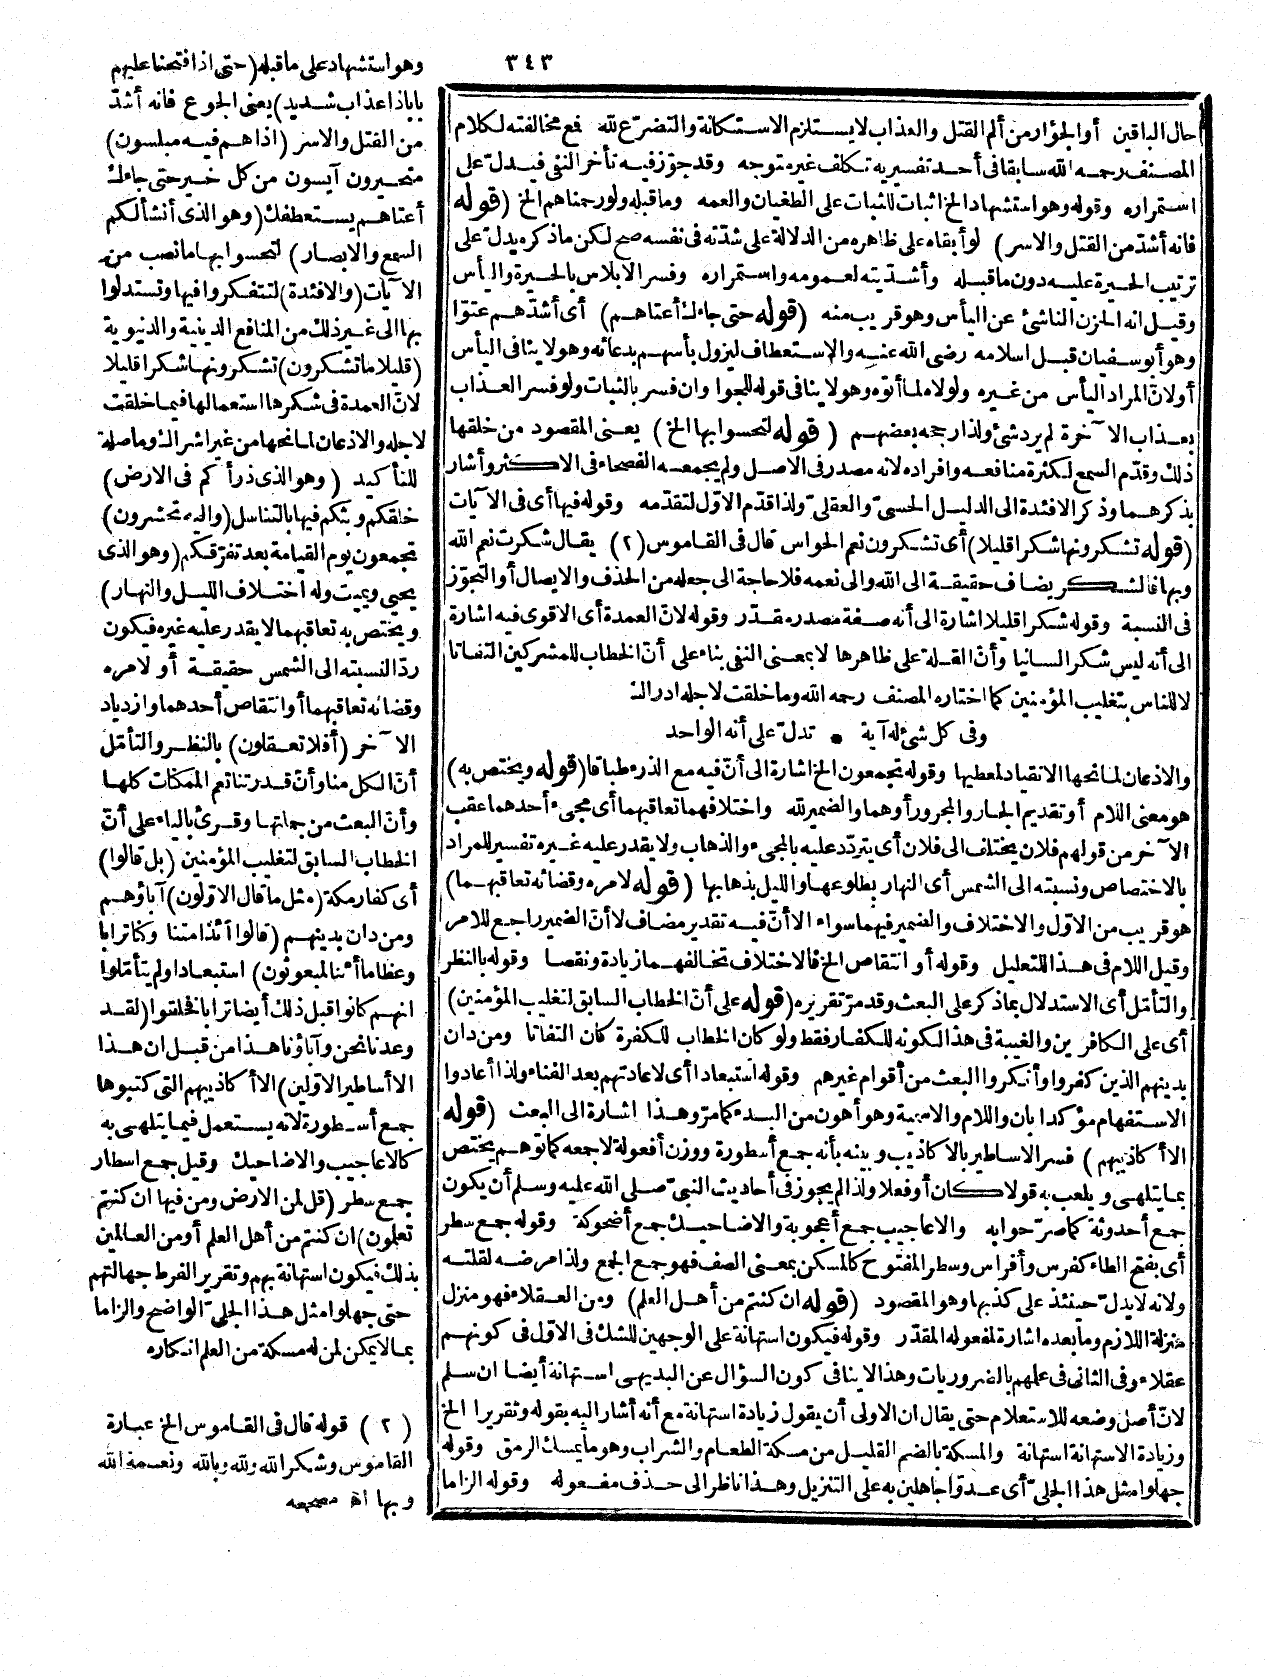 ٣٤٣
حال الباقين أو الجؤار من ألم القتل والعذاب لا يستلزم الاستكانة والتضرّع لله فمع مخالفته لكلام
المصنف رحمه الله سابقا فى أحد تفسيريه تكلف غير متوجه وقد جوّز فيه تأخر النفى فيدلّ على
استمراره وقوله وهو استشهاد الخ اثبات للثبات على الطغيان والعمه وما قبله ولو رحمناهم الخ (قوله
فانه أشدّ من القتل والاسر) لو أبقاه على ظاهره من الدلالة على شدّته فى نفسه صح لكن ما ذكره يدلّ على
ترتيب الحيرة عليه دون ما قبله وأشدّيته لعمومه واستمراره وفسر الابلاس بالحيرة واليأس
وقيل انه الحزن الناشئ عن اليأس وهو قريب منه (قوله حتى جاءك أعتاهم) أى أشدّهم عتوّا
وهو أبو سفيان قبل اسلامه رضى الله عنه والاستعطاف ليزول بأسهم بدعائه وهو لا ينافى اليأس
أو لانّ المراد اليأس من غيره ولولاه لما أتوه وهو لا ينافى قوله للجوا وان فسر بالثبات ولو فسر العذاب
بعذاب الآخرة لم يرد شئ ولذا رجحه بعضهم (قوله لتحسوا بها الخ) يعنى المقصود من خلقها
ذلك وقدّم السمع لكثرة منافعه وافراده لانه مصدر فى الاصل ولم يجمعه الفصحاء فى الاكثر وأشار
بذكرهما وذكر الافئدة الى الدليل الحسىّ والعقلىّ ولذا قدّم الاوّل لتقدّمه وقوله فيها أى فى الآيات
(قوله تشكرونها شكرا قليلا) أى تشكرون نعم الحواس قال فى القاموس (٢) يقال شكرت نعم الله
وبها فالشكر يضاف حقيقة الى الله والى نعمه فلا حاجة الى جعله من الحذف والايصال أو التجوّز
فى النسبة وقوله شكرا قليلا اشارة الى أنه صفة مصدر مقدّر وقوله لانّ العمدة أى الاقوى فيه اشارة
الى أنه ليس شكرا لسانيا وأنّ القلة على ظاهرها لا بمعنى النفى بناء على أنّ الخطاب للمشركين التفاتا
لا للناس بتغليب المؤمنين كما اختاره المصنف رحمه الله وما خلقت لاجله ادراك
وفى كل شئ له آية • تدلّ على أنه الواحد
والاذعان لمانحها الانقياد لمعطيها وقوله تجمعون الخ اشارة الى أنّ فيه مع الذرء طباقا (قوله ويختص به)
هو معنى اللام أو تقديم الجار والمجرور أو هما والضمير لله واختلافهما تعاقبهما أى مجىء أحدهما عقب
الآخر من قولهم فلان يختلف الى فلان أى يتردّد عليه بالمجىء والذهاب ولا يقدر عليه غيره تفسير للمراد
بالاختصاص ونسبته الى الشمس أى النهار بطلوعها والليل بذهابها (قوله لامره وقضائه تعاقبهما)
هو قريب من الاوّل والاختلاف والضمير فيهما سواء الا أنّ فيه تقدير مضاف لا أنّ الضمير راجع للامر
وقيل اللام فى هذا للتعليل وقوله أو انتقاص الخ فالاختلاف تخالفهما زيادة ونقصا وقوله بالنظر
والتأمّل أى الاستدلال بما ذكر على البعث وقد مرّ تقريره (قوله على أنّ الخطاب السابق لتغليب المؤمنين)
أى على الكافرين والغيبة فى هذا لكونه للكفار فقط ولو كان الخطاب للكفرة كان التفاتا ومن دان
بدينهم الذين كفروا وأنكروا البعث من أقوام غيرهم وقوله استبعادا أى لاعادتهم بعد الفناء ولذا أعادوا
الاستفهام مؤكدا بان واللام والاسمية وهو أهون من البدء كما مرّ وهذا اشارة الى البعث (قوله
الا أكاذيبهم) فسر الاساطير بالاكاذيب وبينه بأنه جمع أسطورة ووزن أفعولة لا جمعه كما توهم يختص
بما يتلهى ويلعب به قولا كان أو فعلا ولذا لم يجوز فى أحاديث النبىّ صلى الله عليه وسلم أن يكون
جمع أحدوثة كما صرّحوا به والاعاجيب جمع أعجوبة والاضاحيك جمع أضحوكة وقوله جمع سطر
أى بفتح الطاء كفرس وأفراس وسطر المفتوح كالمسكن بمعنى الصف فهو جمع الجمع ولذا مرضه لقلته
ولانه لا يدلّ حينئذ على كذبها وهو المقصود (قوله ان كنتم من أهل العلم) ومن العقلاء فهو منزل
منزلة اللازم وما بعده اشارة لمفعوله المقدّر وقوله فيكون استهانة على الوجهين للشك فى الاوّل فى كونهم
عقلاء وفى الثانى فى علمهم بالضروريات وهذا لا ينافى كون السؤال عن البديهى استهانة أيضا ان سلم
لانّ أصل وضعه للاستعلام حتى يقال ان الاولى أن يقول زيادة استهانة مع أنه أشار اليه بقوله وتقريرا الخ
وزيادة الاستهانة استهانة والمسكة بالضم القليل من مسكة الطعام والشراب وهو ما يمسك الرمق وقوله
جهلوا مثل هذا الجلىّ أى عدّوا جاهلين به على التنزيل وهذا ناظر الى حذف مفعوله وقوله الزاما
وهو استشهاد على ما قبله (حتى اذا فتحنا عليهم
بابا ذا عذاب شديد) يعنى الجوع فانه أشدّ
من القتل والاسر (اذا هم فيه مبلسون)
متحيرون آيسون من كل خير حتى جاءك
أعتاهم يستعطفك (وهو الذى أنشأ لكم
السمع والابصار) لتحسوا بها ما نصب من
الآيات (والافئدة) لتتفكروا فيها وتستدلوا
بها الى غير ذلك من المنافع الدينية والدنيوية
(قليلا ما تشكرون) تشكرونها شكرا قليلا
لانّ العمدة فى شكرها استعمالها فيما خلقت
لاجله والاذعان لمانحها من غير اشراك وما صلة
للتأكيد (وهو الذى ذرأكم فى الارض)
خلقكم وبثكم فيها بالتناسل (واليه تحشرون)
تجمعون يوم القيامة بعد تفرّقكم (وهو الذى
يحيى ويميت وله اختلاف الليل والنهار)
ويختص به تعاقبهما لا يقدر عليه غيره فيكون
ردّا لنسبته الى الشمس حقيقة أو لامره
وقضائه تعاقبهما أو انتقاص أحدهما وازدياد
الآخر (أفلا تعقلون) بالنظر والتأمّل
أنّ الكل منا وأنّ قدرتنا تعم الممكنات كلها
وأنّ البعث من جملتها وقرئ بالياء على أنّ
الخطاب السابق لتغليب المؤمنين (بل قالوا)
أى كفار مكة (مثل ما قال الاوّلون) آباؤهم
ومن دان بدينهم (قالوا أئذا متنا وكنا ترابا
وعظاما أئنا لمبعوثون) استبعادا ولم يتأمّلوا
انهم كانوا قبل ذلك أيضا ترابا فخلقوا (لقد
وعدنا نحن وآباؤنا هذا من قبل ان هذا
الا أساطير الاوّلين) الا أكاذيبهم التى كتبوها
جمع أسطورة لانه يستعمل فيما يتلهى به
كالاعاجيب والاضاحيك وقيل جمع اسطار
جمع سطر (قل لمن الارض ومن فيها ان كنتم
تعلمون) ان كنتم من أهل العلم أو من العالمين
بذلك فيكون استهانة بهم وتقرير الفرط جهالتهم
حتى جهلوا مثل هذا الجلىّ الواضح والزاما
بما لا يمكن لمن له مسكة من العلم انكاره
(٢) قوله قال فى القاموس الخ عبارة
القاموس وشكر الله ولله وبالله ونعمة الله
وبها اه مصححه